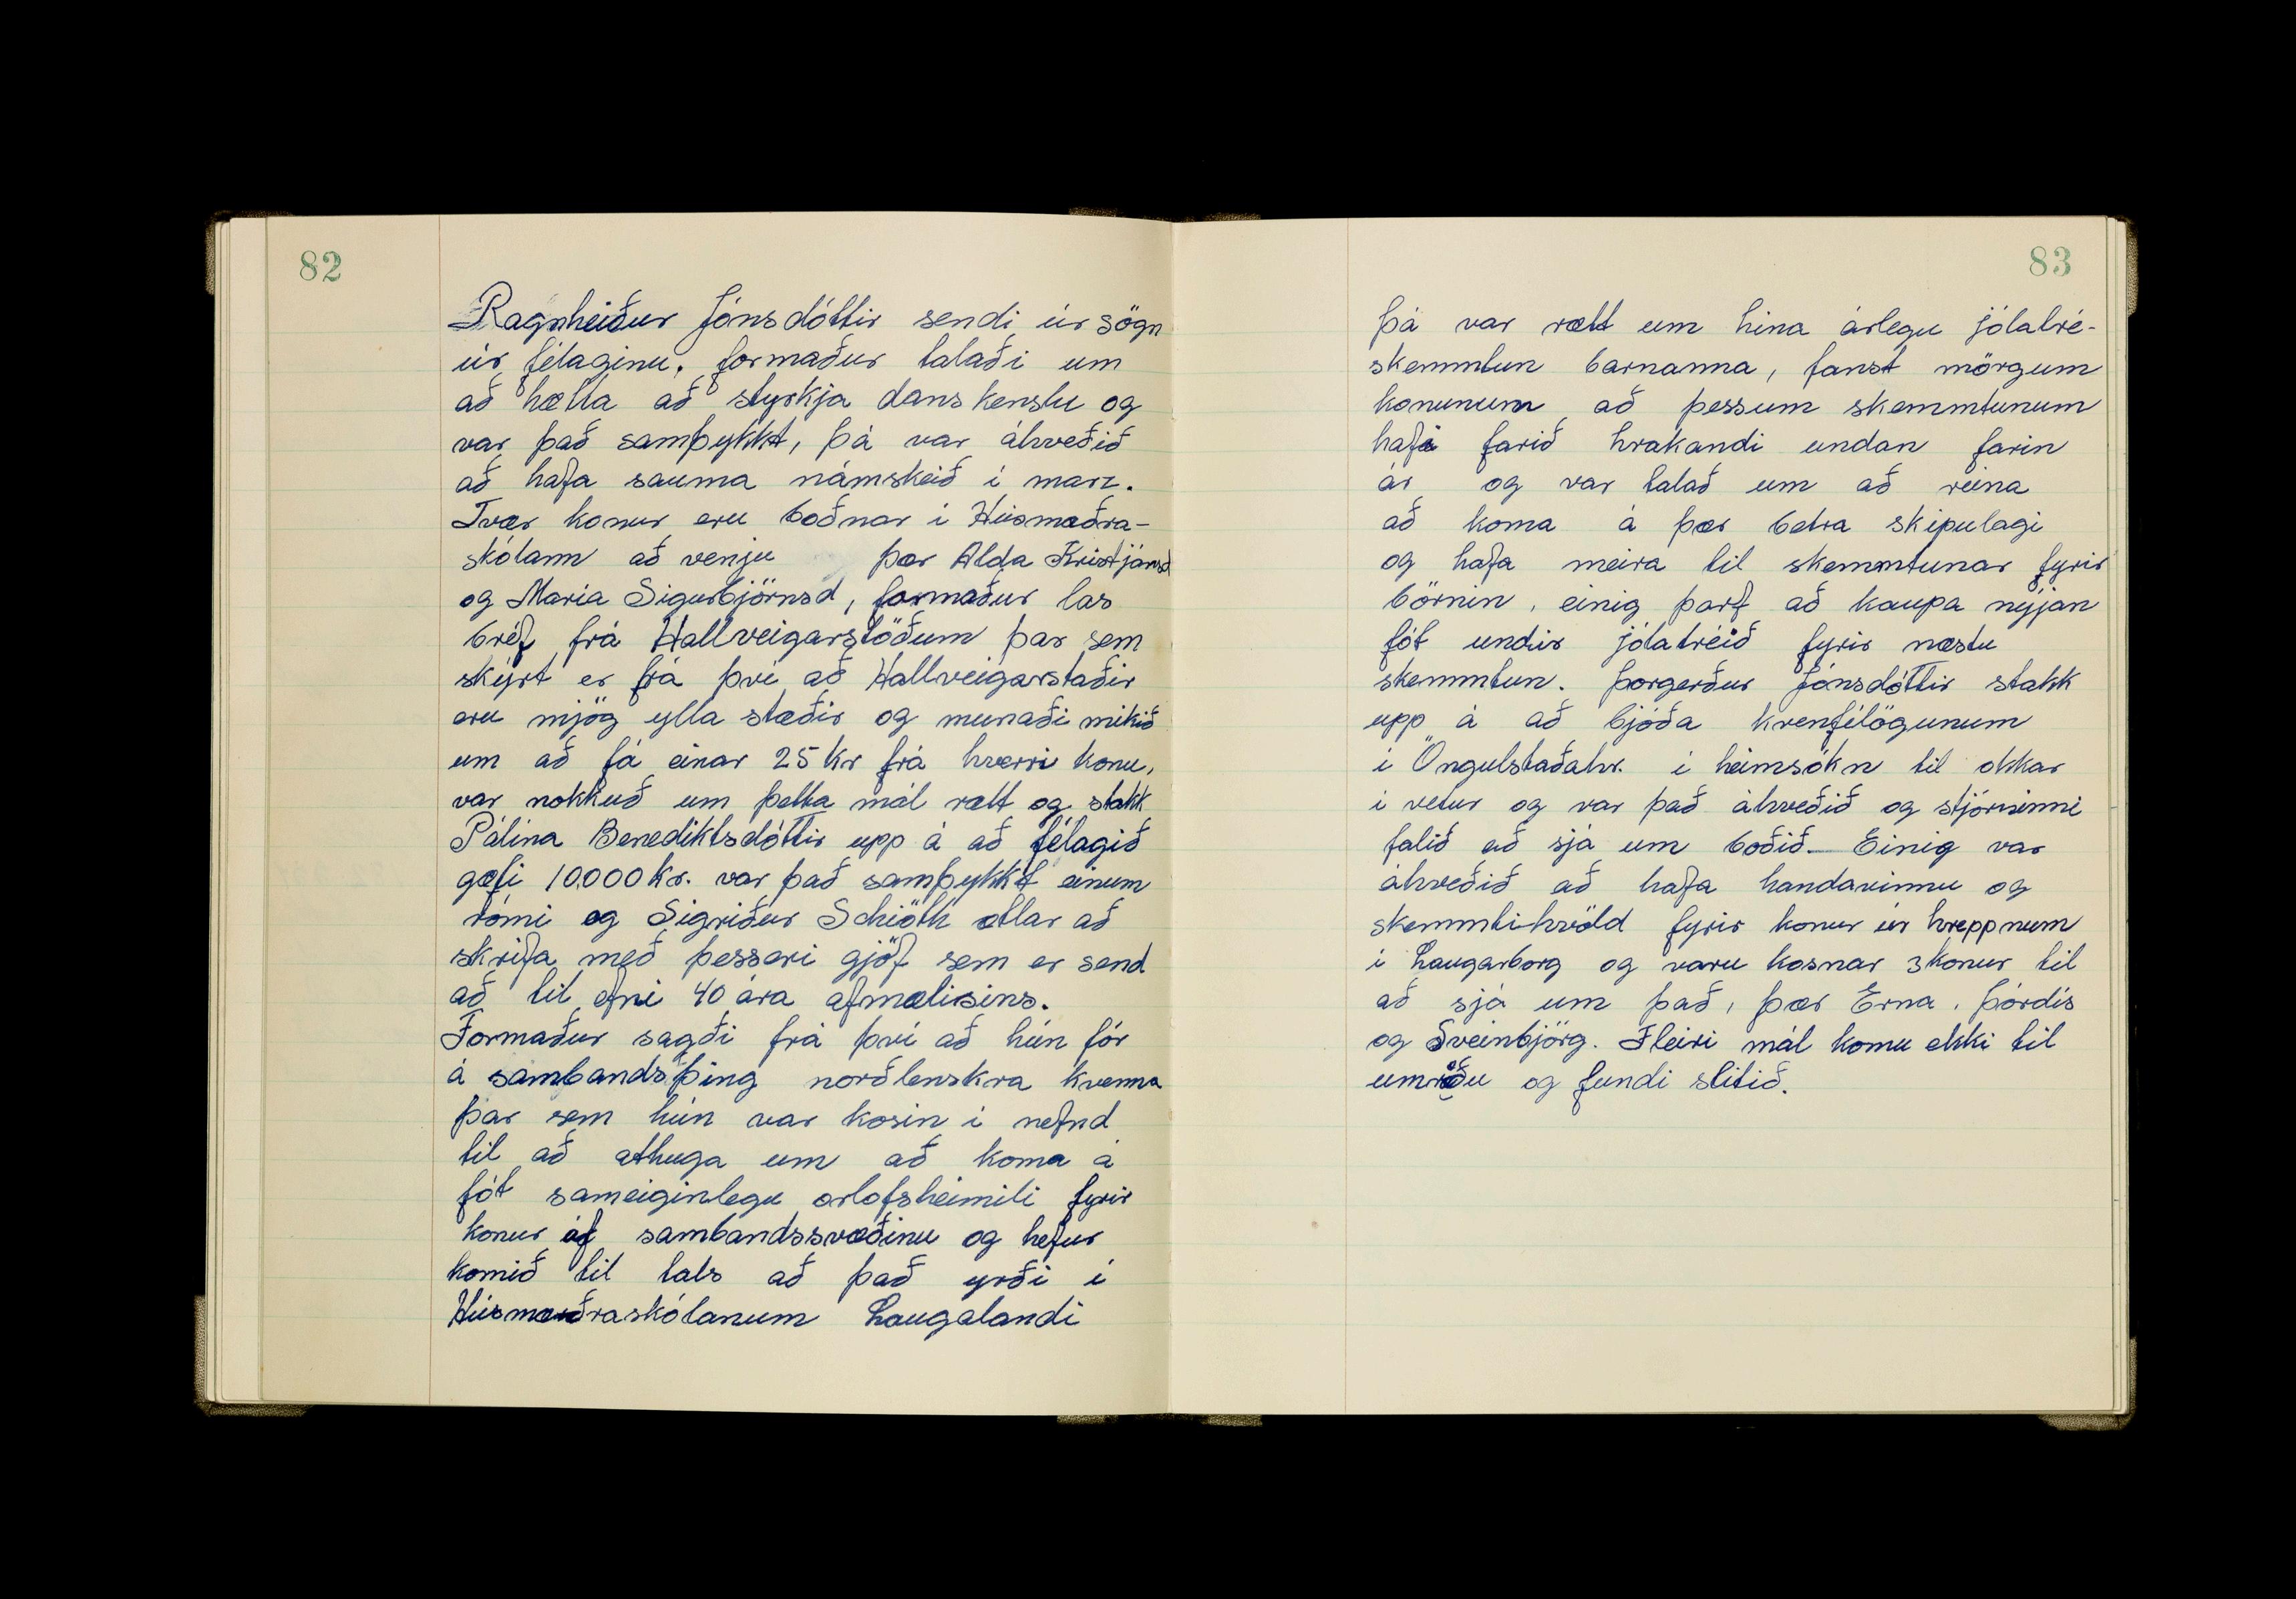 82
Ragnheiður Jónsdóttir sendi úr sögn
úr félaginu. formaður talaði um
að hætta að styrkja dans kenslu og
var það samþykkt, þá var ákveðið
að hafa sauma námskeið í marz.
Tvær konur eru boðnar í Húsmæðra-
skólann að venju þær Alda Kristjánsd
og María Sigurbjörnsd, formaður las
bréf frá Hallveigarstöðum þar sem
skýrt er frá því að Hallveigarstaðir
eru mjög ylla stæðir og munaði mikið
um að fá einar 25 kr frá hverri konu,
var nokkuð um þetta mál rætt og stakk
Pálína Benediktsdóttir upp á að félagið
gæfi 10.000 kr. var það samþykkt einum
rómi og Sigríður Schiöth ætlar að
skrifa með þessari gjöf sem er send
að til efni 40 ára afmælisins.
Formaður sagði frá því að hún fór
á sambandsþing norðlenskra kvenna
þar sem hún var kosin í nefnd
til að athuga um að koma á
fót sameiginlegu orlofsheimili fyrir
konur áf sambandssvæðinu og hefur
komið til tals að það yrði í
Húsmæðraskólanum Laugalandi
83
Þá var rætt um hina árlegu jólatré-
skemmtun barnanna, fanst mörgum
konunum að þessum skemmtunum
hafi farið hrakandi undan farin
ár og var talað um að reina
að koma á þær betra skipulagi
og hafa meira til skemmtunar fyrir
börnin, einig þarf að kaupa nýjan
fót undir jólatréið fyrir næstu
skemmtun. Þorgerður Jónsdóttir stakk
upp á að bjóða kvenfélögunum
í Öngulstaðahr. í heimsókn til okkar
í vetur og var það ákveðið og stjórninni
falið að sjá um boðið. Einig var
ákveðið að hafa handavinnu og
skemmti-kvöld fyrir konur úr hreppnum
í Laugarborg og varu kosnar 3 konur til
að sjá um það, þær Erna, Þórdís
og Sveinbjörg. Fleiri mál komu ekki til
umræðu og fundi slitið.